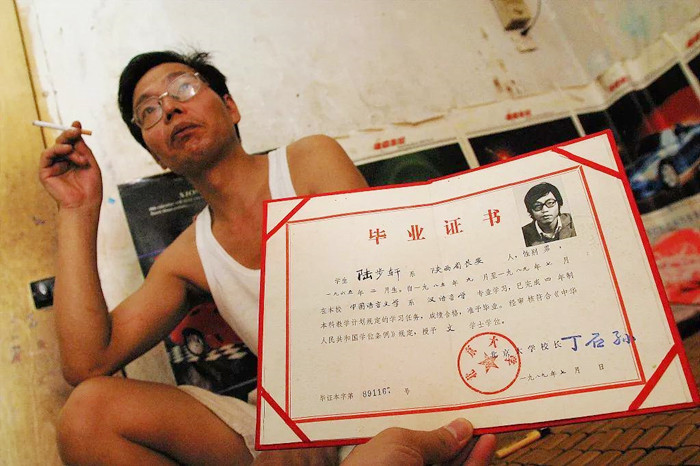 毕业证书
学生 陆步轩 系 陕西省长安 人,性别 男,
一九六五年 二 月生。自一九八五年 九 月至一九八九年 七 月
在本校 中国语言文学系 汉语言学 专业学习,已完成 四 年制
本科教学计划规定的学习任务,成绩合格,准予毕业。经审核符合《中华
人民共和国学位条例》规定,授予 文 学士学位。
北京大学校长 丁石孙
一九八九年七月 日
毕证本字第 891167 号
北京大学